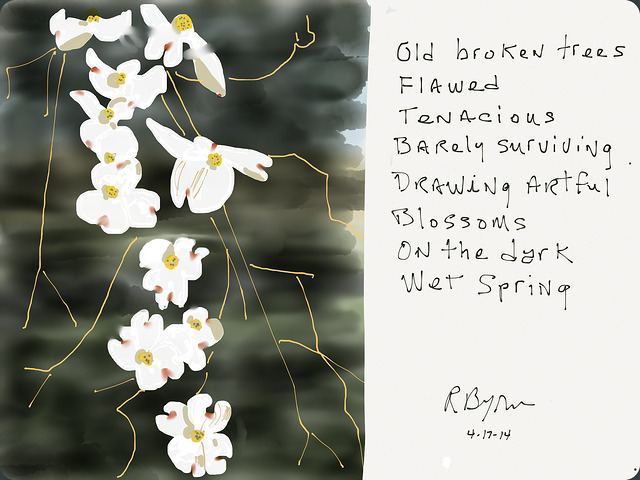 Old broken trees
Flawed
Tenacious
Barely surviving
Drawing Artful
Blossoms
On the dark
Wet Spring
RByrne
4-17-14